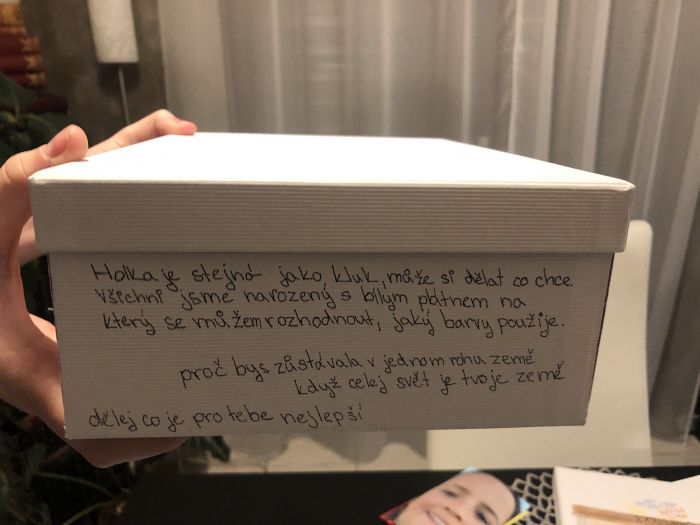 Holka je stejná jako kluk, může si dělat co chce.
Všichni jsme narozený s bílým plátnem na
který se můžem rozhodnout, jaký barvy použije.
proč bys zůstávala v jednom rohu země
když celej svět je tvoje země
dělej co je pro tebe nejlepší